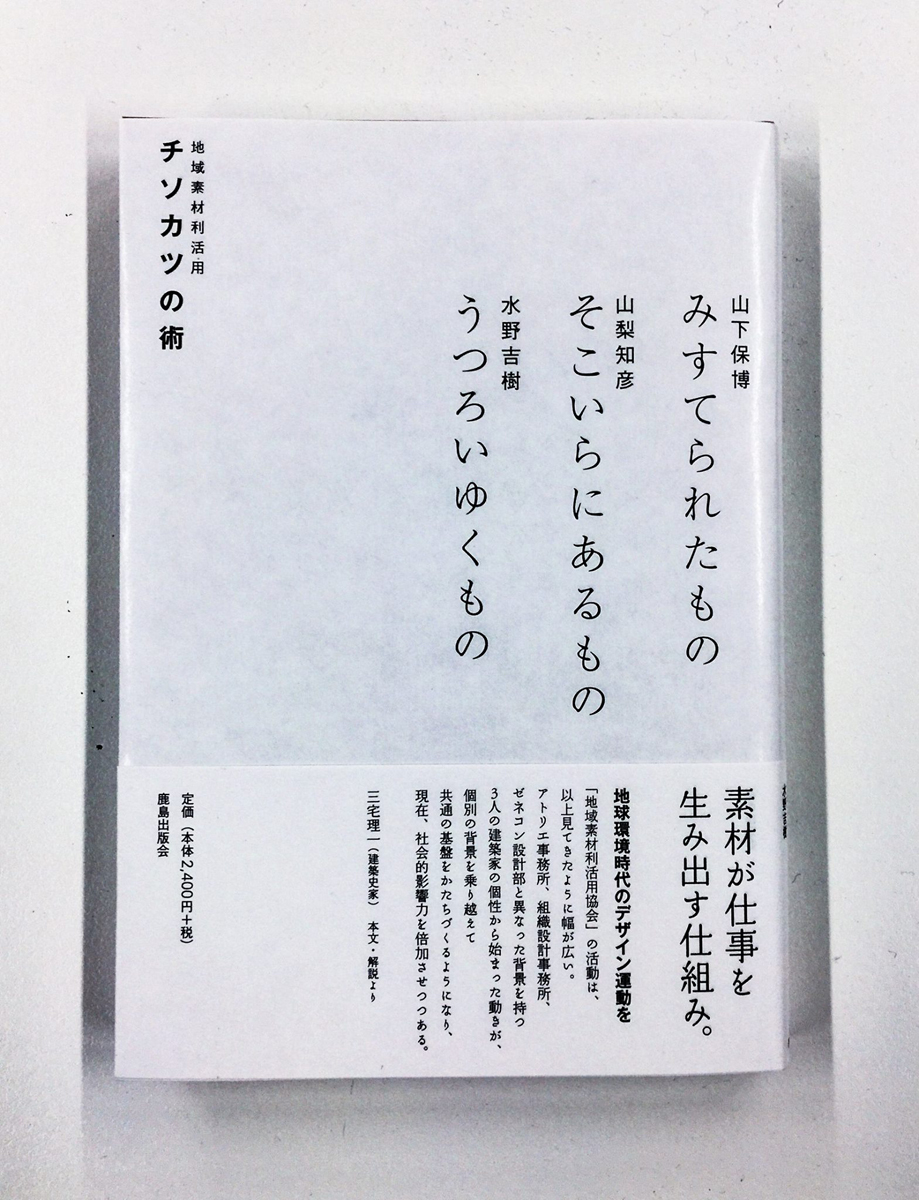 山下保博
みすてられたもの
山梨知彦
そこいらにあるもの
水野吉樹
うつろいゆくもの
地域素材利活用
チソカツの術
素材が仕事を
生み出す仕組み。
地球環境時代のデザイン運動を
「地域素材利活用協会」の活動は、
以上見てきたように幅が広い。
アトリエ事務所、組織設計事務所、
ゼネコン設計部と異なった背景を持つ
3人の建築家の個性から始まった動きが、
個別の背景を乗り越えて
共通の基盤をかたちづくるようになり、
現在、社会的影響力を倍加させつつある。
三宅理一（建築史家） 本文・解説より
定価（本体2,400円+税）
鹿島出版会